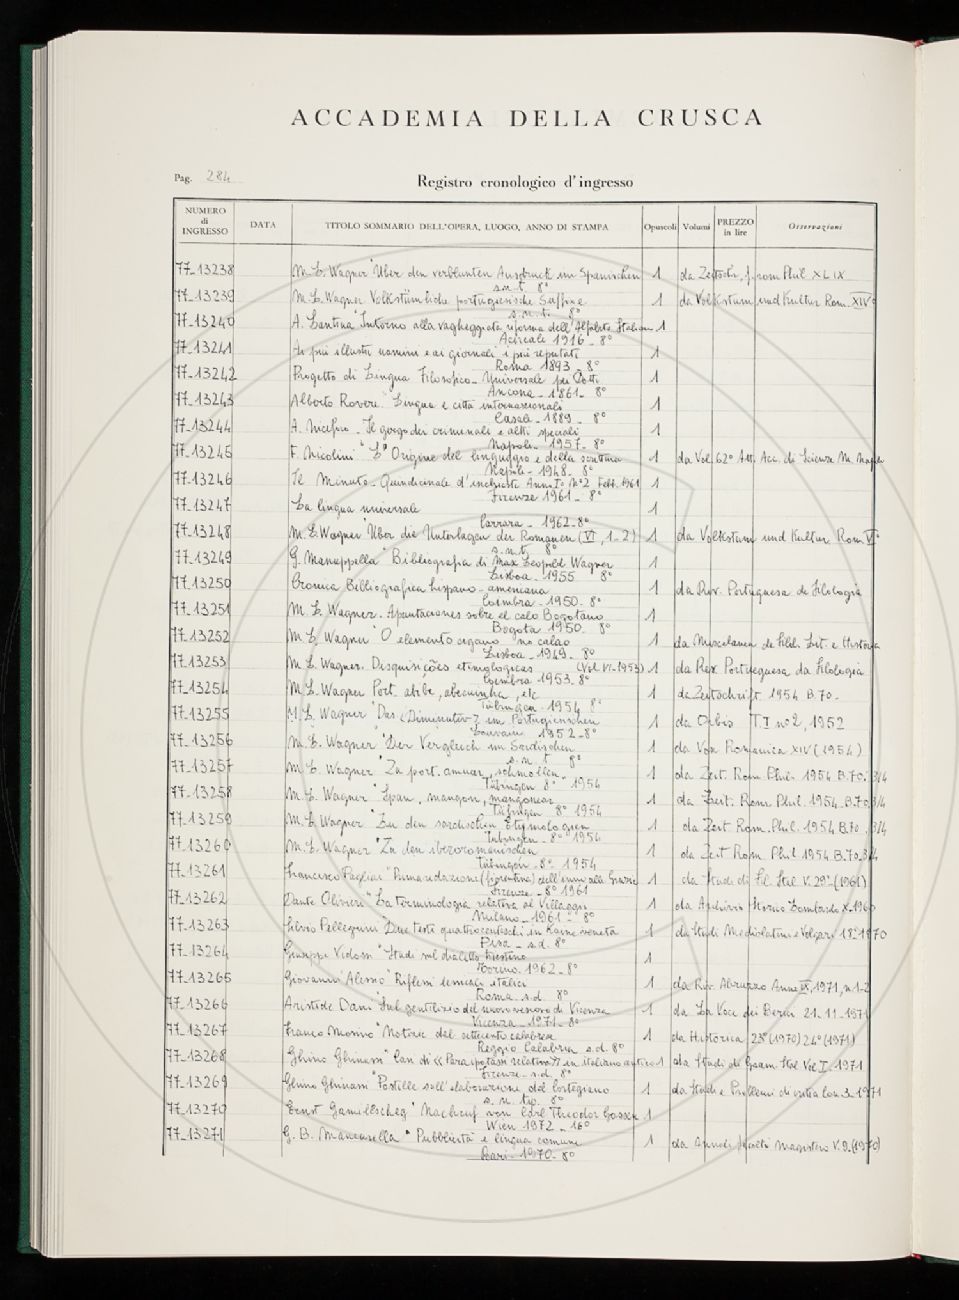 ACCADEMIA DELLA CRUSCA
Pag. 284
Registro cronologico d'ingresso
NUMERO di INGRESSO DATA TITOLO SOMMARIO DELL'OPERA, LUOGO, ANNO DI STAMPA Opuscoli Volumi PREZZO in lire Osservazioni
77-13238 M.L. Wagner "Über den verblümten Ausdruck im Spanischen 1 da Zeitschr. f. rom Phil. XLIX
s.n.t. 8°
77-13239 M.L. Wagner Volkstümliche portugiesische Suffixe 1 da Volkstum und Kultur Rom. XIV
s.n.t. 8°
77-13240 A. Lentina "Intorno alla vagheggiata riforma dell'Alfabeto Italiano 1
Acireale 1916 - 8°
77-13241 Ai più illustri uomini e ai giornali i più reputati 1
Roma 1893 - 8°
77-13242 Progetto di Lingua Filosofico-Universale pei Dotti 1
Ancona - 1861 - 8°
77-13243 Alberto Rovere. Lingua e città internazionali 1
Casale - 1889 - 8°
77-13244 A. Niceforo - Il gergo dei criminali e altri speciali 1
Napoli - 1957 - 8°
77-13245 F. Nicolini "L'Origine del linguaggio e della scrittura 1 da Vol. 62° Att. Acc. di Scienze M.
Napoli - 1948 - 8°
77-13246 Il Minuto - Quindicinale d'inchieste Anno I° N°2 Febb. 1961 1
Firenze 1961 - 8°
77-13247 La lingua universale 1
Carrara - 1962 - 8°
77-13248 M.L. Wagner "Über die Unterlagen der Romanen (VI, 1-2) 1 da Volkstum und Kultur Rom VI
s.n.t. 8°
77-13249 G. Manuppella "Bibliografia di Max Leopold Wagner 1
Lisboa - 1955 8°
77-13250 Cronica Bibliografica hispano-americana 1 da Riv. Portuguesa de Filologia
Coimbra - 1950 - 8°
77-13251 M.L. Wagner - Apuntaciones sobre el calo Bogotano 1
Bogota 1950 - 8°
77-13252 M.L. Wagner "O elemento cigano no calão 1 da Miscelanea de Filol. Lit. e Historia
Lisboa - 1949 - 8°
77-13253 M.L. Wagner. Disquisições etimologicas (Vol. VI - 1953) 1 da Rev. Portuguesa da Filologia
Coimbra 1953. 8°
77-13254 M.L. Wagner Port. atibe, abecuinha, etc 1 da Zeitschrift 1954 B.70 -
Tübingen - 1954 8°
77-13255 M.L. Wagner "Das «Diminutiv» im Portugiesischen 1 da Orbis T.I n°2, 1952
Louvain 1952 - 8°
77-13256 M.L. Wagner "Der Vergleich im Sardischen 1 da Vox Romanica XIV (1954)
s.n.t 8°
77-13257 M.L. Wagner "Zu port. amuar, schmollen. 1 da Zeit. Rom. Phil. 1954 B.70. 3/4
Tübingen 8° 1954
77-13258 M.L. Wagner "Span. mangon, mangonear 1 da Zeit. Rom. Phil. 1954. B.70. 3/4
Tübingen 8° 1954
77-13259 M.L. Wagner "Zu den sardischen Etymologien 1 da Zeit Rom. Phil. 1954 B.70. 3/4
Tubingen - 8° 1954
77-13260 M.L. Wagner "Zu den iberoromanischen 1 da Zeit Rom. Phil 1954 B.70. 3/4
Tübingen - 8° 1954
77-13261 Francesco Pagliai "Prima redazione (fiorentina) dell'inno alle Grazie 1 da Studi di Fil. Ital. V. 29° (1961)
Firenze - 8° 1961
77-13262 Dante Olivieri "La terminologia relativa al Villaggio 1 da Archivio Storico Lombardo X. 1960
Milano - 1961 - 8°
77-13263 Silvio Pellegrini Due testi quattrocenteschi in koinè veneta 1 da Studi Mediolatini e Volgari 18° 1970
Pisa - s.d. 8°
77-13264 Giuseppe Vidossi "Studi sul dialetto triestino 1
Torino 1962 - 8°
77-13265 Giovanni Alessio "Riflessi lessicali italici 1 da Riv. Abruzzo Anno IX, 1971, n. 1-2
Roma s.d. 8°
77-13266 Aristide Dani "Sul gentilizio del nuovo vescovo di Vicenza 1 da La Voce dei Berici 21.11.1971
Vicenza - 1971 - 8°
77-13267 Franco Mosino "Notizie dal settecento calabrese 1 da Historica 23° (1970) 24° (1971)
Reggio Calabria s.d. 8°
77-13268 Ghino Ghinassi "Casi di «Paraipotassi relativa» in italiano antico 1 da Studi di Gram. Ital Vol. I. 1971
Firenze - s.d. 8°
77-13269 Ghino Ghinassi "Postille sull'elaborazione del Cortegiano 1 da Studi e Problemi di critica 3 - 1971
s.n. tip. 8°
77-13270 Ernst Gamillscheg "Nachruf von Carl Theodor Gossen 1
Wien 1972 - 16°
77-13271 G.B. Mancarella "Pubblicità e lingua comune 1 da Annali facoltà Magistero V. 9 (1970)
Bari - 1970 - 8°